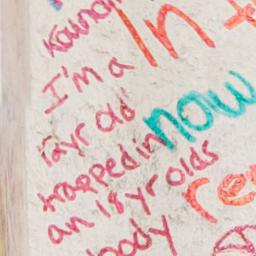 I'm a
12yr old
trapped in
an 18yr olds
body
In
now